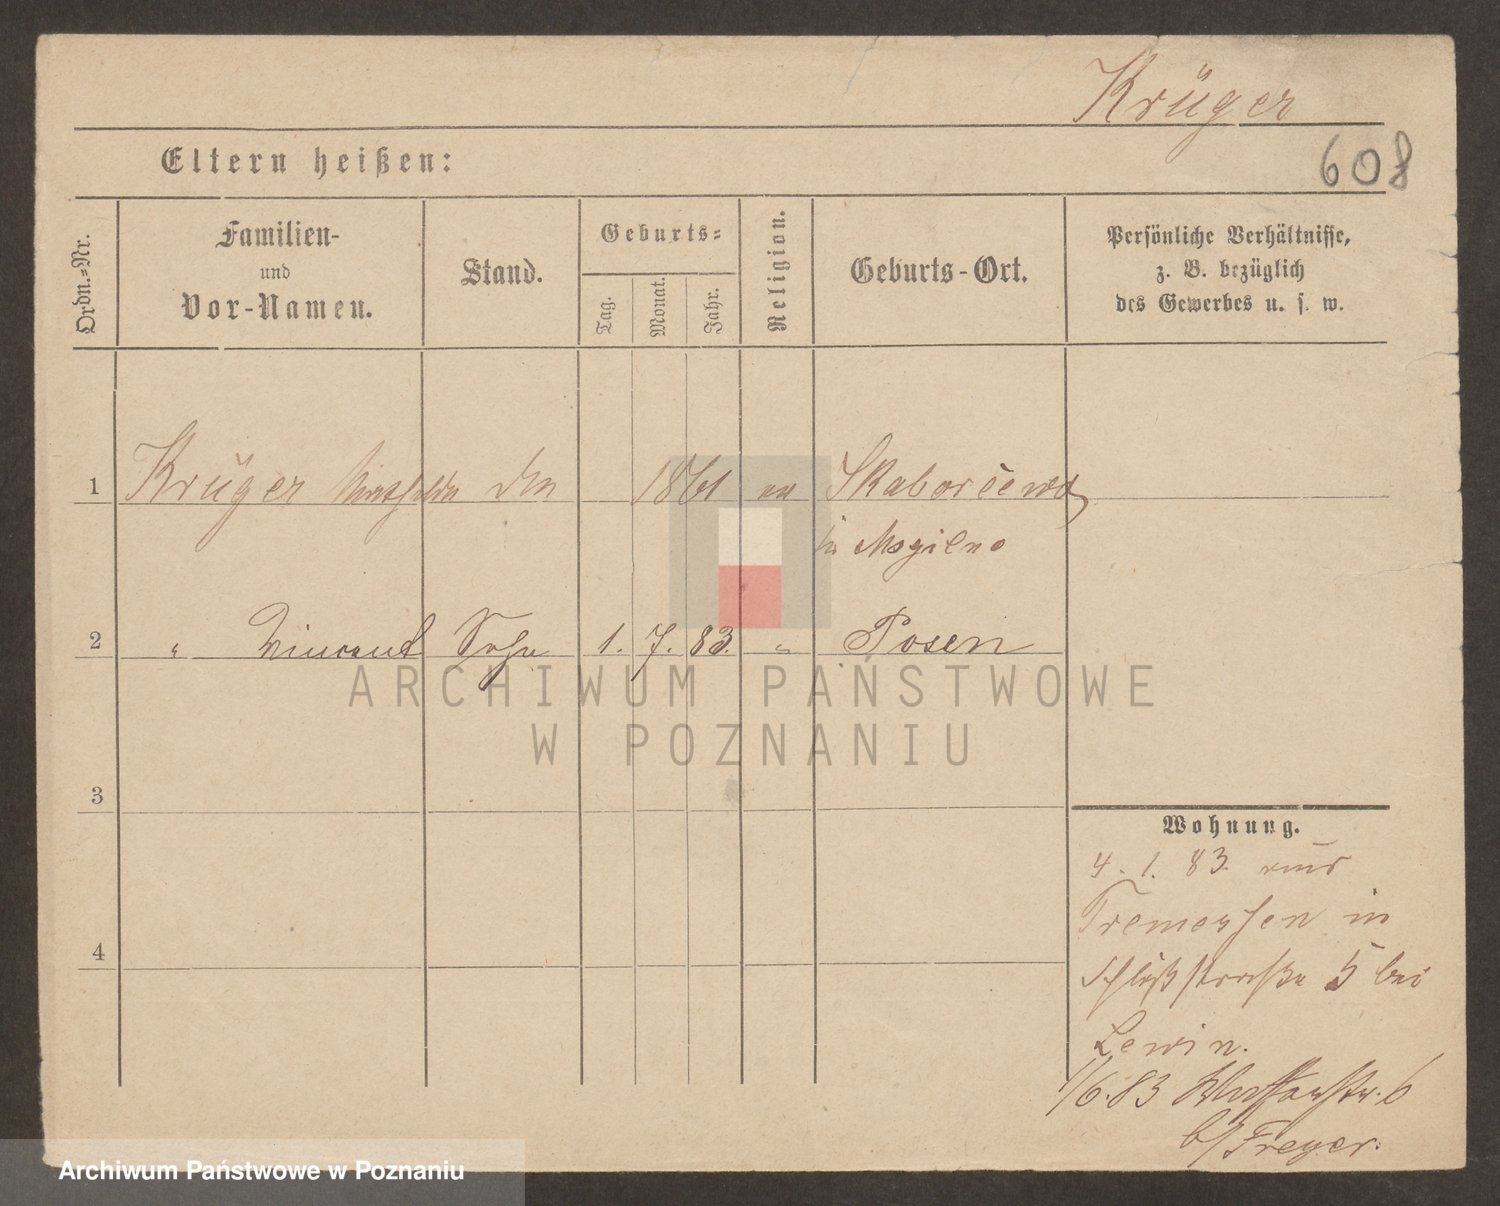 Krüger
608
Eltern heißen:
Ordn.-Nr.
Familien-
und
Vor-Namen.
Stand.
Geburts-
Tag.
Monat.
Jahr.
Religion.
Geburts-Ort.
Persönliche Verhältnisse,
z. B. bezüglich
des Gewerbes u. s. w.
1 Krüger 1861
in Mogilno
2 " Vincent Sohn 1. 7. 83. " Posen
ARCHIWUM PAŃSTWOWE
W POZNANIU
3
Wohnung.
4. 1. 83. aus
Tremessen in
4
Schloßstraße 5 bei
Lewin.
1/6. 83 Wasserstr. 6
b/ Freyer.
Archiwum Państwowe w Poznaniu